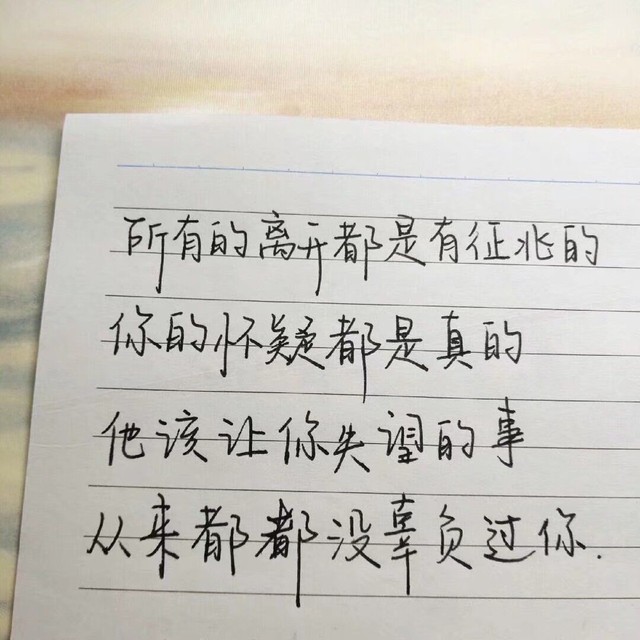 所有的离开都是有征兆的
你的怀疑都是真的
他该让你失望的事
从来都都没辜负过你.